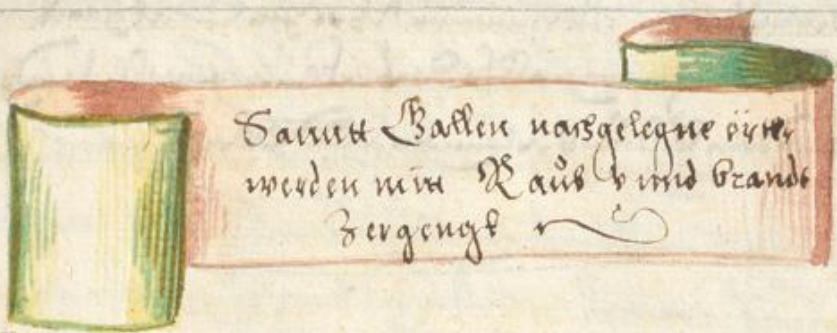 Sanntt Gallen nachgelegne örtter
werden mitt Raub vnnd brandt
Zergengt